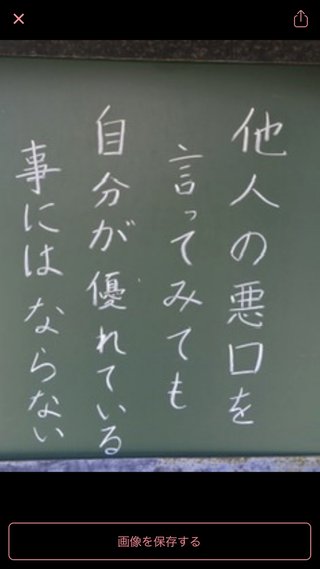 他人の悪口を
言ってみても
自分が優れている
事にはならない
画像を保存する